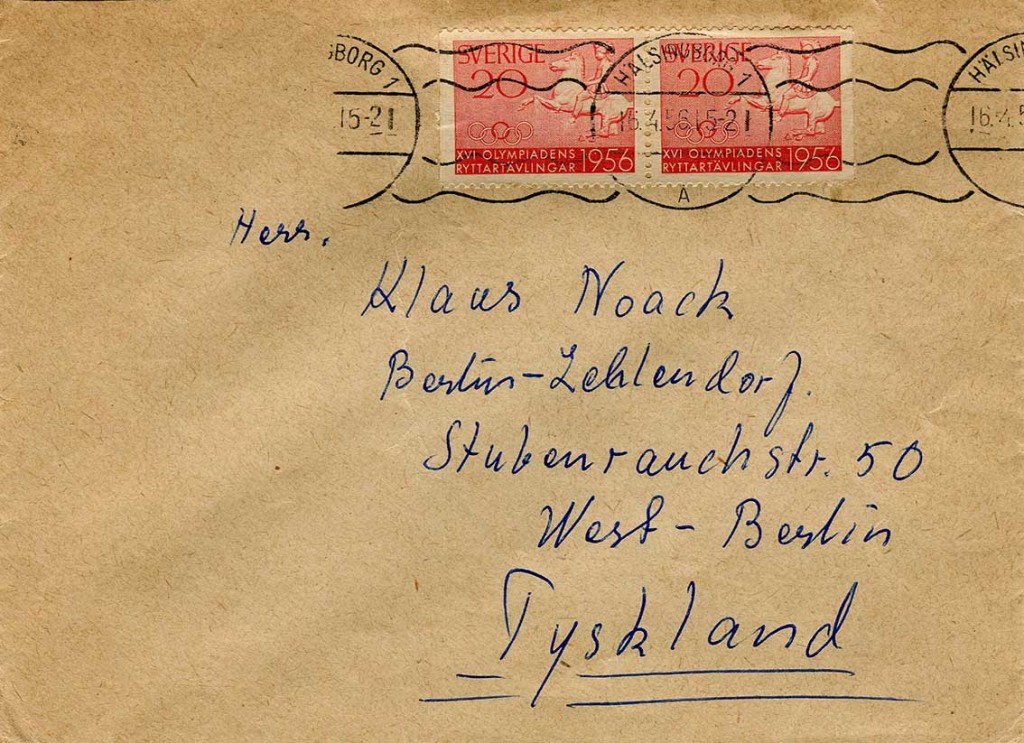 SVERIGE
20
XVI OLYMPIADENS
RYTTARTÄVLINGAR 1956
SVERIGE
20
XVI OLYMPIADENS
RYTTARTÄVLINGAR 1956
SBORG 1
15-21
HÄLSINGBORG 1
16.4.56 15-21
A
HÄLSIN
16.4.5
Herr.
Klaus Noack
Berlin-Zehlendorf.
Stubenrauchstr. 50
West-Berlin
Tyskland